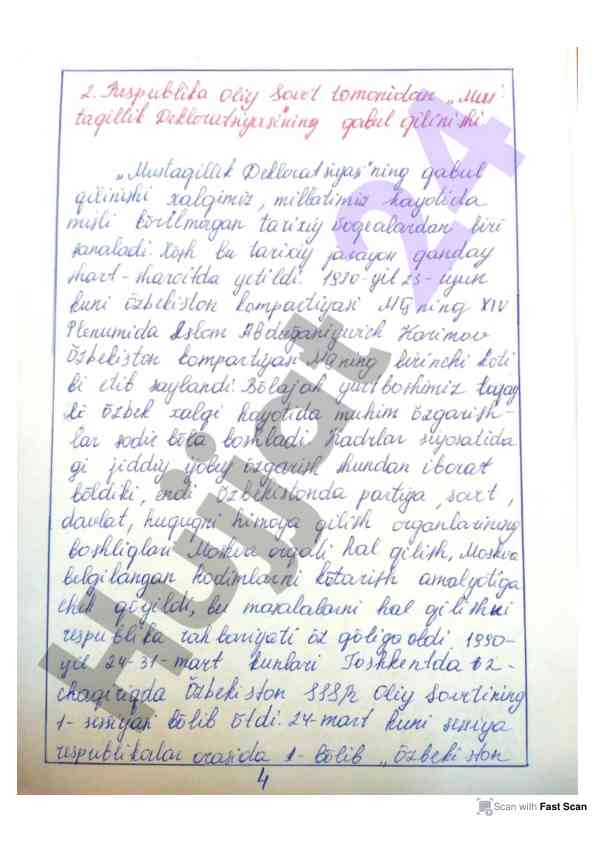 2. Respublika Oliy Sovet tomonidan „Mus-
taqillik Dekloratsiyasi"ning qabul qilinishi.
„Mustaqillik Deklaratsiyasi"ning qabul
qilinishi xalqimiz, millatimiz hayotida
misli körilmagan tarixiy voqealardan biri
sanaladi. Xösh bu tarixiy jarayon qanday
shart-sharoitda yetildi. 1990-yil 23-iyun
kuni özbekiston kompartiyasi MQ ning XIV
Plenumida Islom Abdug'aniyevich Karimov
Özbekiston kompartiyasi MQning birinchi koti
bi etib saylandi. Bölajak yurtboshimiz tufay
li özbek xalqi hayotida muhim özgarish-
lar sodir böla boshladi. Kadrlar siyosatida
gi jiddiy ijobiy özgarish shundan iborat
böldiki, endi Özbekistonda partiya, sovet,
davlat, huquqni himoya qilish organlarining
boshliqlari Moskva orqali hal qilish, Moskva
belgilangan hodimlarni kötarish amalyotiga
chek qöyildi, bu masalalarni hal qilishni
respublika rahbariyati öz qöliga oldi. 1990-
yil 24-31-mart kunlari Toshkentda 12-
chaqiriqda Özbekiston SSSR Oliy Sovetining
1-sessiyasi bölib ötdi. 24-mart kuni sessiya
respublikalar orasida 1-bölib „Özbekiston
4
Hujjat 24
Scan with Fast Scan